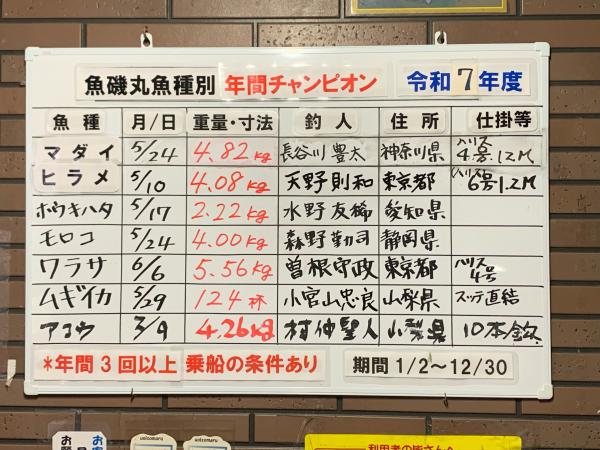 魚磯丸魚種別 年間チャンピオン 令和7年度
魚種 月/日 重量・寸法 釣人 住所 仕掛等
マダイ 5/24 4.82kg 長谷川豊太 神奈川県 ハリス4号12M
ヒラメ 5/10 4.08kg 天野則和 東京都 ハリス6号1.2M
ホウキハタ 5/17 2.22kg 水野友稀 愛知県
モロコ 5/24 4.00kg 森野勤司 静岡県
ワラサ 6/6 5.56kg 曽根守政 東京都 ハリス4号
ムギイカ 5/29 124杯 小宮山忠良 山梨県 スッテ直結
アコウ 3/9 4.26kg 村仲聖人 山梨県 10本針
*年間3回以上 乗船の条件あり 期間 1/2〜12/30
利用者の皆さんへ